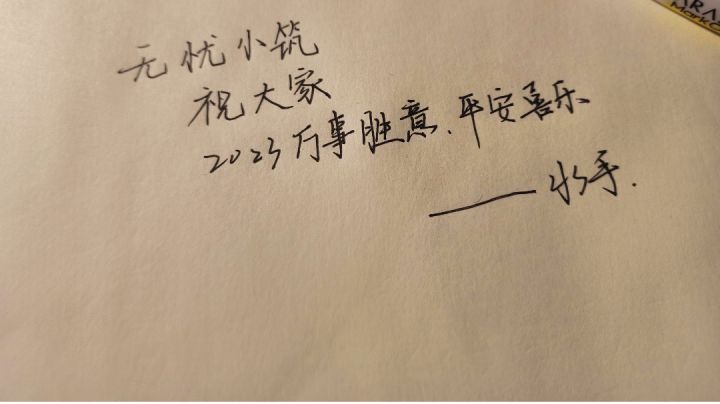 无忧小筑
祝大家
2023万事胜意、平安喜乐
——水手.